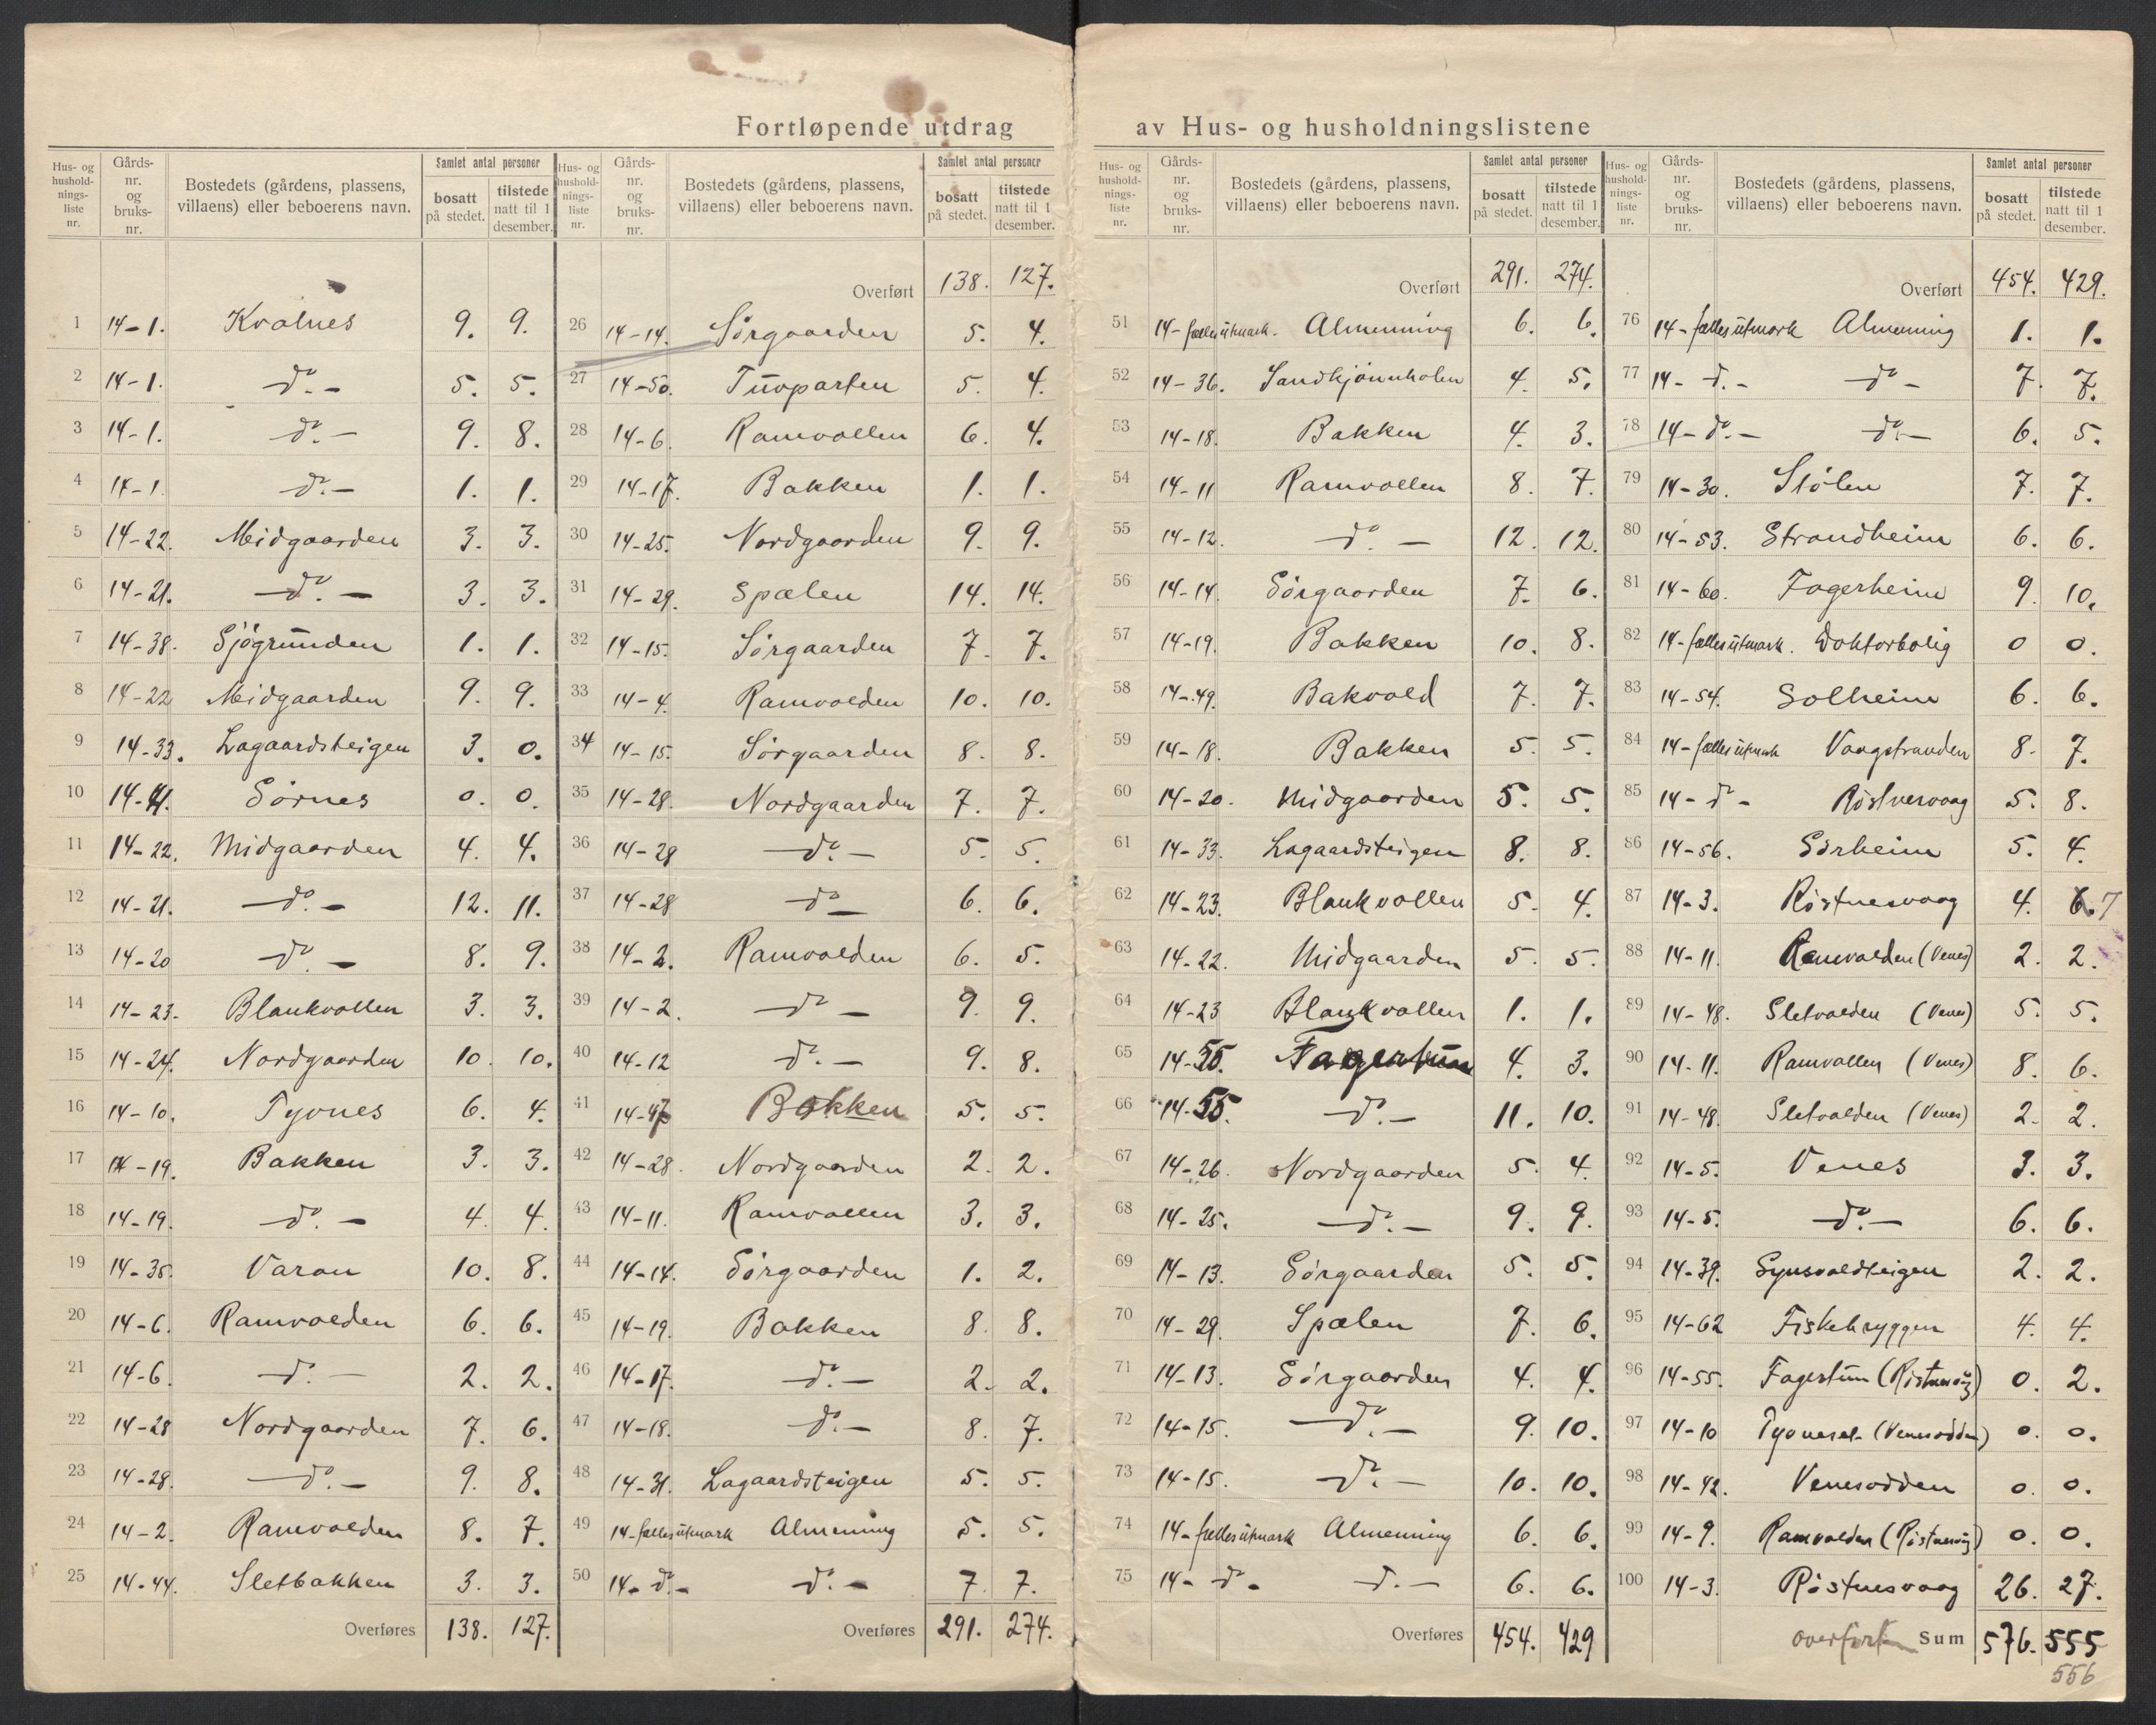 Fortløpende utdrag av Hus- og husholdningslistene
Hus- og husholdnings- liste nr. | Gårds- nr. og bruks- nr. | Bostedets (gårdens, plassens, villaens) eller beboerens navn. | Samlet antal personer bosatt på stedet. | tilstede natt til 1 desember.
1 14-1. Kvalnes 9. 9.
2 14-1. do.- 5. 5.
3 14-1. do.- 9. 8.
4 14-1 do.- 1. 1.
5 14-22. Meidgaarden 3. 3.
6 14-21. do.- 3. 3.
7 14-38. Sjøgrunden 1. 1.
8 14-22 Meidgaarden 9. 9.
9 14-33. Lagaardsteigen 3. 0.
10 14-41. Sørnes 0. 0.
11 14-22. Midgaarden 4. 4.
12 14-21. do.- 12. 11.
13 14-20 do.- 8. 9.
14 14-23. Blankvollen 3. 3.
15 14-24. Nordgaarden 10. 10.
16 14-10. Tyvnes 6. 4.
17 14-19. Bakken 3. 3.
18 14-19. do.- 4. 4.
19 14-35. Varan 10. 8.
20 14-6. Ramvolden 6. 6.
21 14-6. do.- 2. 2.
22 14-28 Nordgaarden 7. 6.
23 14-28. do.- 9. 8.
24 14-2. Ramvolden 8. 7.
25 14-44. Sletbakken 3. 3.
Overføres 138. 127.
Hus- og husholdnings- liste nr. | Gårds- nr. og bruks- nr. | Bostedets (gårdens, plassens, villaens) eller beboerens navn. | Samlet antal personer bosatt på stedet. | tilstede natt til 1 desember.
Overført 138. 127.
26 14-14. Sørgaarden 5. 4.
27 14-50. Tuvparten 5. 4.
28 14-6. Ramvollen 6. 4.
29 14-17. Bakken 1. 1.
30 14-25. Nordgaarden 9. 9.
31 14-29. Spælen 14. 14.
32 14-15. Sørgaarden 7. 7.
33 14-4. Ramvolden 10. 10.
34 14-15. Sørgaarden 8. 8.
35 14-28. Nordgaarden 7. 7.
36 14-28 do.- 5. 5.
37 14-28 do- 6. 6.
38 14-2. Ramvolden 6. 5.
39 14-2. do- 9. 9.
40 14-12 do.- 9. 8.
41 14-47 Bakken 5. 5.
42 14-28. Nordgaarden 2. 2.
43 14-11. Ramvallen 3. 3.
44 14-14. Sørgaarden 1. 2.
45 14-19. Bakken 8. 8.
46 14-17. do.- 2. 2.
47 14-18. do.- 8. 7.
48 14-31. Lagaardsteigen 5. 5.
49 14-fælles utmark Almenning 5. 5.
50 14- do.- do.- 7. 7.
Overføres 291. 274.
Hus- og husholdnings- liste nr. | Gårds- nr. og bruks- nr. | Bostedets (gårdens, plassens, villaens) eller beboerens navn. | Samlet antal personer bosatt på stedet. | tilstede natt til 1 desember.
Overført 291. 274.
51 14-fælles utmark. Almenning 6. 6.
52 14-36. Sandkjønnholen 4. 5.
53 14-18. Bakken 4. 3.
54 14-11 Ramvollen 8. 7.
55 14-12. do.- 12. 12.
56 14-14. Sørgaarden 7. 6.
57 14-19. Bakken 10. 8.
58 14-49. Bakvold 7. 7.
59 14-18. Bakken 5. 5.
60 14-20. Midgaarden 5. 5.
61 14-33. Lagaardsteigen 8. 8.
62 14-23. Blankvollen 5. 4.
63 14-22. Midgaarden 5. 5.
64 14-23 Blankvollen 1. 1.
65 14-55. Fagertun 4. 3.
66 14-55. do.- 11. 10.
67 14-26. Nordgaarden 5. 4.
68 14-25. do.- 9. 9.
69 14-13. Sørgaarden 5. 5.
70 14-29. Spælen 7. 6.
71 14-13. Sørgaarden 4. 4.
72 14-15. do.- 9. 10.
73 14-15. do.- 10. 10.
74 14-fælles utmark Almenning 6. 6.
75 14- do. do.- 6. 6.
Overføres 454. 429
Hus- og husholdnings- liste nr. | Gårds- nr. og bruks- nr. | Bostedets (gårdens, plassens, villaens) eller beboerens navn. | Samlet antal personer bosatt på stedet. | tilstede natt til 1 desember.
Overført 454. 429.
76 14-fælles utmark Almenning 1. 1.
77 14- do.- do- 7. 7.
78 14- do.- do.- 6. 5.
79 14-30. Stølen 7. 7.
80 14-53. Strandheim 6. 6.
81 14-60. Fagerheim 9. 10.
82 14-fælles utmark. Doktorbolig 0 0.
83 14-54. Solheim 6. 6.
84 14-fælles utmark Vaagstranden 8. 7.
85 14- do- Røstnesvaag 5. 8.
86 14-56. Sørheim 5. 4.
87 14-3. Røstnesvaag 4. 6. 7
88 14-11. Ramvolden (Venes) 2. 2.
89 14-48. Sletvolden (Venes) 5. 5.
90 14-11. Ramvallen (Venes) 8. 6.
91 14-48. Sletvolden (Venes) 2. 2.
92 14-5. Venes 3. 3.
93 14-5. do.- 6. 6.
94 14-39. Synsvoldteigen 2. 2.
95 14-62 Fiskebryggen 4. 4.
96 14-55. Fagertun (Røstnesvåg) 0. 2.
97 14-10 (Venesodden) 0. 0.
98 14-42. Venesodden 0. 0.
99 14-9. Ramvolden (Røstnesvåg) 0. 0.
100 14-3. Røstnesvaag 26. 27.
overføres Sum 576. 555
556